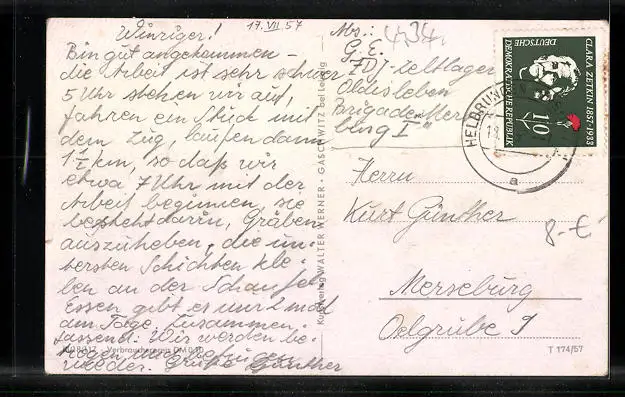 17. VII. 57
Winziger!
Bin gut angekommen –
die Arbeit ist sehr schwer
5 Uhr stehen wir auf,
fahren ein Stück mit
dem Zug, laufen dann
1½ km, so daß wir
etwa 7 Uhr mit der
Arbeit beginnen, sie
besteht darin, Gräben
auszuheben, die un-
tersten Schichten kle-
ben an der Schaufel
Essen gibt es nur 2 mal
am Tage. Zusammen-
fassend: Wir werden be-
wieder. Grüße Günther
Abs.:
G. E.
FDJ-Zeltlager
Oldisleben
Brigade „Merse-
burg I“
434.
Herrn
Kurt Günther
8.-€
Merseburg
Oelgrube 9
CLARA ZETKIN 1857-1933
DEUTSCHE
DEMOKRATISCHE REPUBLIK
10
HELDRUNGEN
a
Kunstverlag WALTER WERNER · GASCHWITZ bei Leipzig
Verbraucherpreis DM 0,10
T 174/57